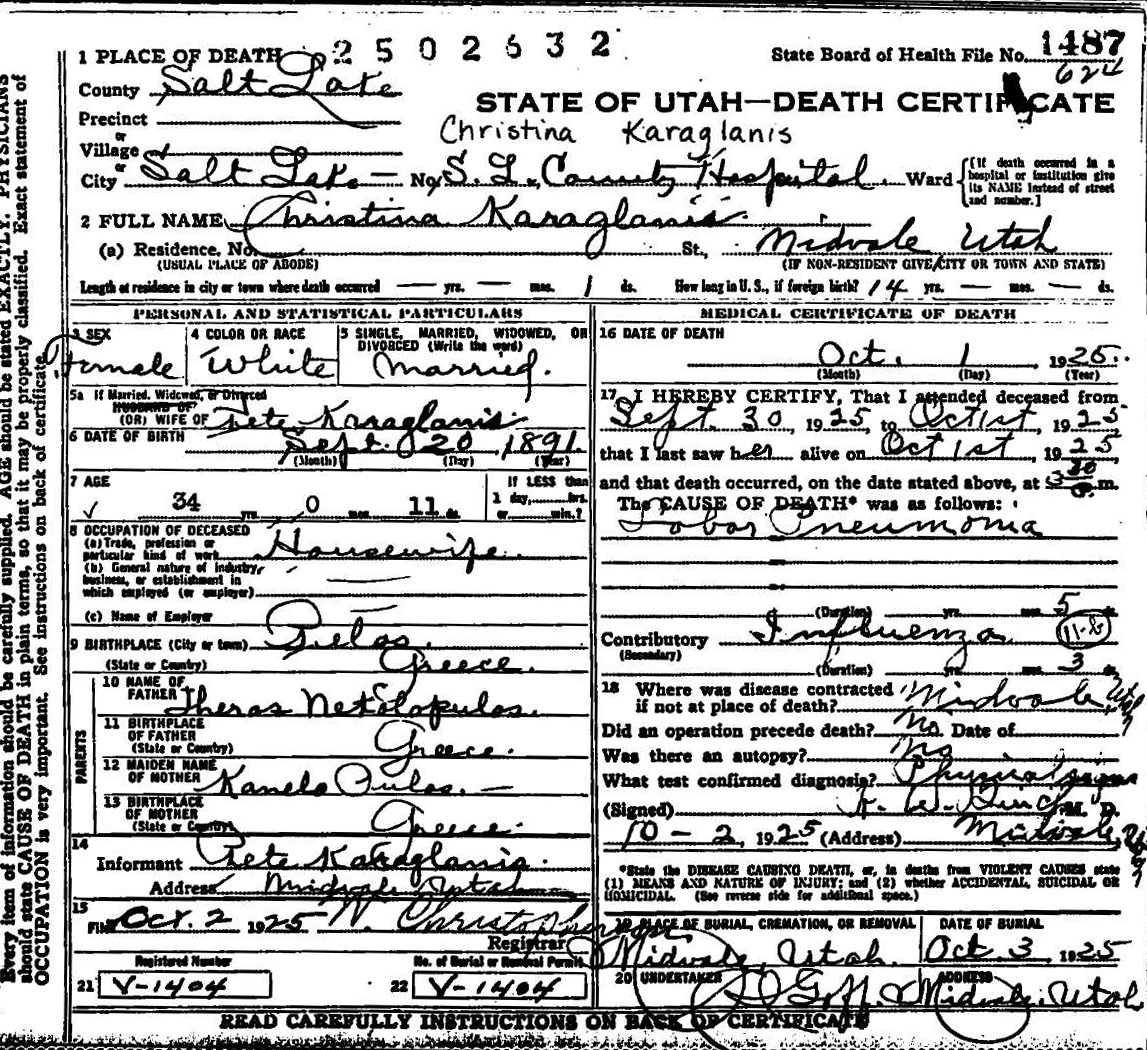 1 PLACE OF DEATH 2502632 State Board of Health File No. 1487
624
County Salt Lake
STATE OF UTAH—DEATH CERTIFICATE
Precinct
or
Village
Christina Karaglanis
or
City Salt Lake — No. S. L. County Hospital. Ward [If death occurred in a hospital or institution give its NAME instead of street and number.]
2 FULL NAME Christina Karaglanis
(a) Residence, No. St., Midvale Utah
(USUAL PLACE OF ABODE) (IF NON-RESIDENT GIVE CITY OR TOWN AND STATE)
Length of residence in city or town where death occurred — yrs. — mos. 1 ds. How long in U. S., if foreign birth? 14 yrs. — mos. — ds.
PERSONAL AND STATISTICAL PARTICULARS
3 SEX
Female
4 COLOR OR RACE
White
5 SINGLE, MARRIED, WIDOWED, OR DIVORCED (Write the word)
Married.
5a If Married, Widowed, or Divorced
HUSBAND OF
(OR) WIFE OF Pete Karaglanis
6 DATE OF BIRTH Sept. 20, 1891.
(Month) (Day) (Year)
7 AGE If LESS than
✓ 34 yrs. 0 mos. 11 ds. 1 day, hrs.
or min.?
8 OCCUPATION OF DECEASED
(a) Trade, profession or
particular kind of work Housewife
(b) General nature of industry,
business, or establishment in
which employed (or employer)
(c) Name of Employer
9 BIRTHPLACE (City or town)
(State or Country) Greece.
PARENTS
10 NAME OF
FATHER Theras
11 BIRTHPLACE
OF FATHER
(State or Country) Greece.
12 MAIDEN NAME
OF MOTHER Kanela Pulos. —
13 BIRTHPLACE
OF MOTHER
(State or Country) Greece.
14
Informant Pete Karaglanis.
Address Midvale, Utah
15
Filed Oct. 2 1925 Christopherson
Registrar
Registered Number No. of Burial or Removal Permit
21 V-1404 22 V-1404
MEDICAL CERTIFICATE OF DEATH
16 DATE OF DEATH
Oct. 1 1925.
(Month) (Day) (Year)
17 I HEREBY CERTIFY, That I attended deceased from
Sept. 30, 1925, to Oct 1st, 1925
that I last saw her alive on Oct 1st, 1925
and that death occurred, on the date stated above, at 3 30 P. m.
The CAUSE OF DEATH* was as follows:
Lobar Pneumonia
(Duration) yrs. mos. 5 ds.
Contributory Influenza 11-B
(Secondary)
(Duration) yrs. mos. 3 ds.
18 Where was disease contracted
if not at place of death? Midvale, Utah
Did an operation precede death? No. Date of
Was there an autopsy? No
What test confirmed diagnosis? Physical signs
(Signed) M. D.
10 - 2, 1925 (Address) Midvale, Utah
*State the DISEASE CAUSING DEATH, or, in deaths from VIOLENT CAUSES state
(1) MEANS AND NATURE OF INJURY; and (2) whether ACCIDENTAL, SUICIDAL OR
HOMICIDAL. (See reverse side for additional space.)
19 PLACE OF BURIAL, CREMATION, OR REMOVAL
Midvale, Utah.
DATE OF BURIAL
Oct. 3 1925
20 UNDERTAKER
Goff
ADDRESS
Midvale, Utah
READ CAREFULLY INSTRUCTIONS ON BACK OF CERTIFICATE
Every item of information should be carefully supplied. AGE should be stated EXACTLY. PHYSICIANS
should state CAUSE OF DEATH in plain terms, so that it may be properly classified. Exact statement of
OCCUPATION is very important. See instructions on back of certificate.